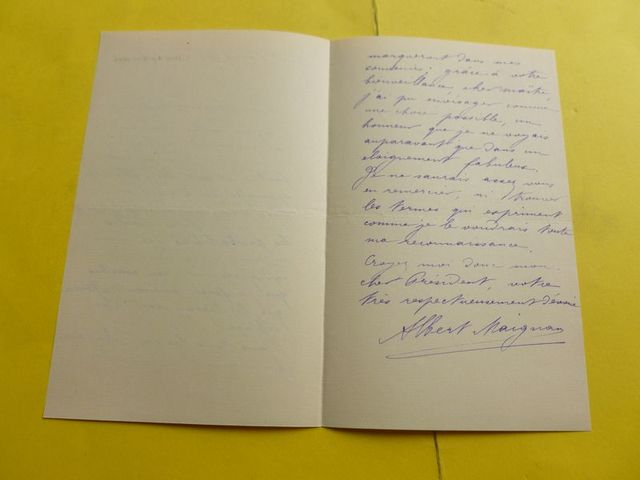 marqueront dans mes
souvenirs ; grâce à votre
bienveillance, cher maître
j'ai pu envisager comme
une chose possible, un
honneur que je ne voyais
auparavant que dans un
éloignement fabuleux.
Je ne saurais assez vous
en remercier, ni trouver
les termes qui expriment
comme je le voudrais toute
ma reconnaissance.
Croyez moi donc mon
cher Président, votre
très respectueusement dévoué
Albert Maignan